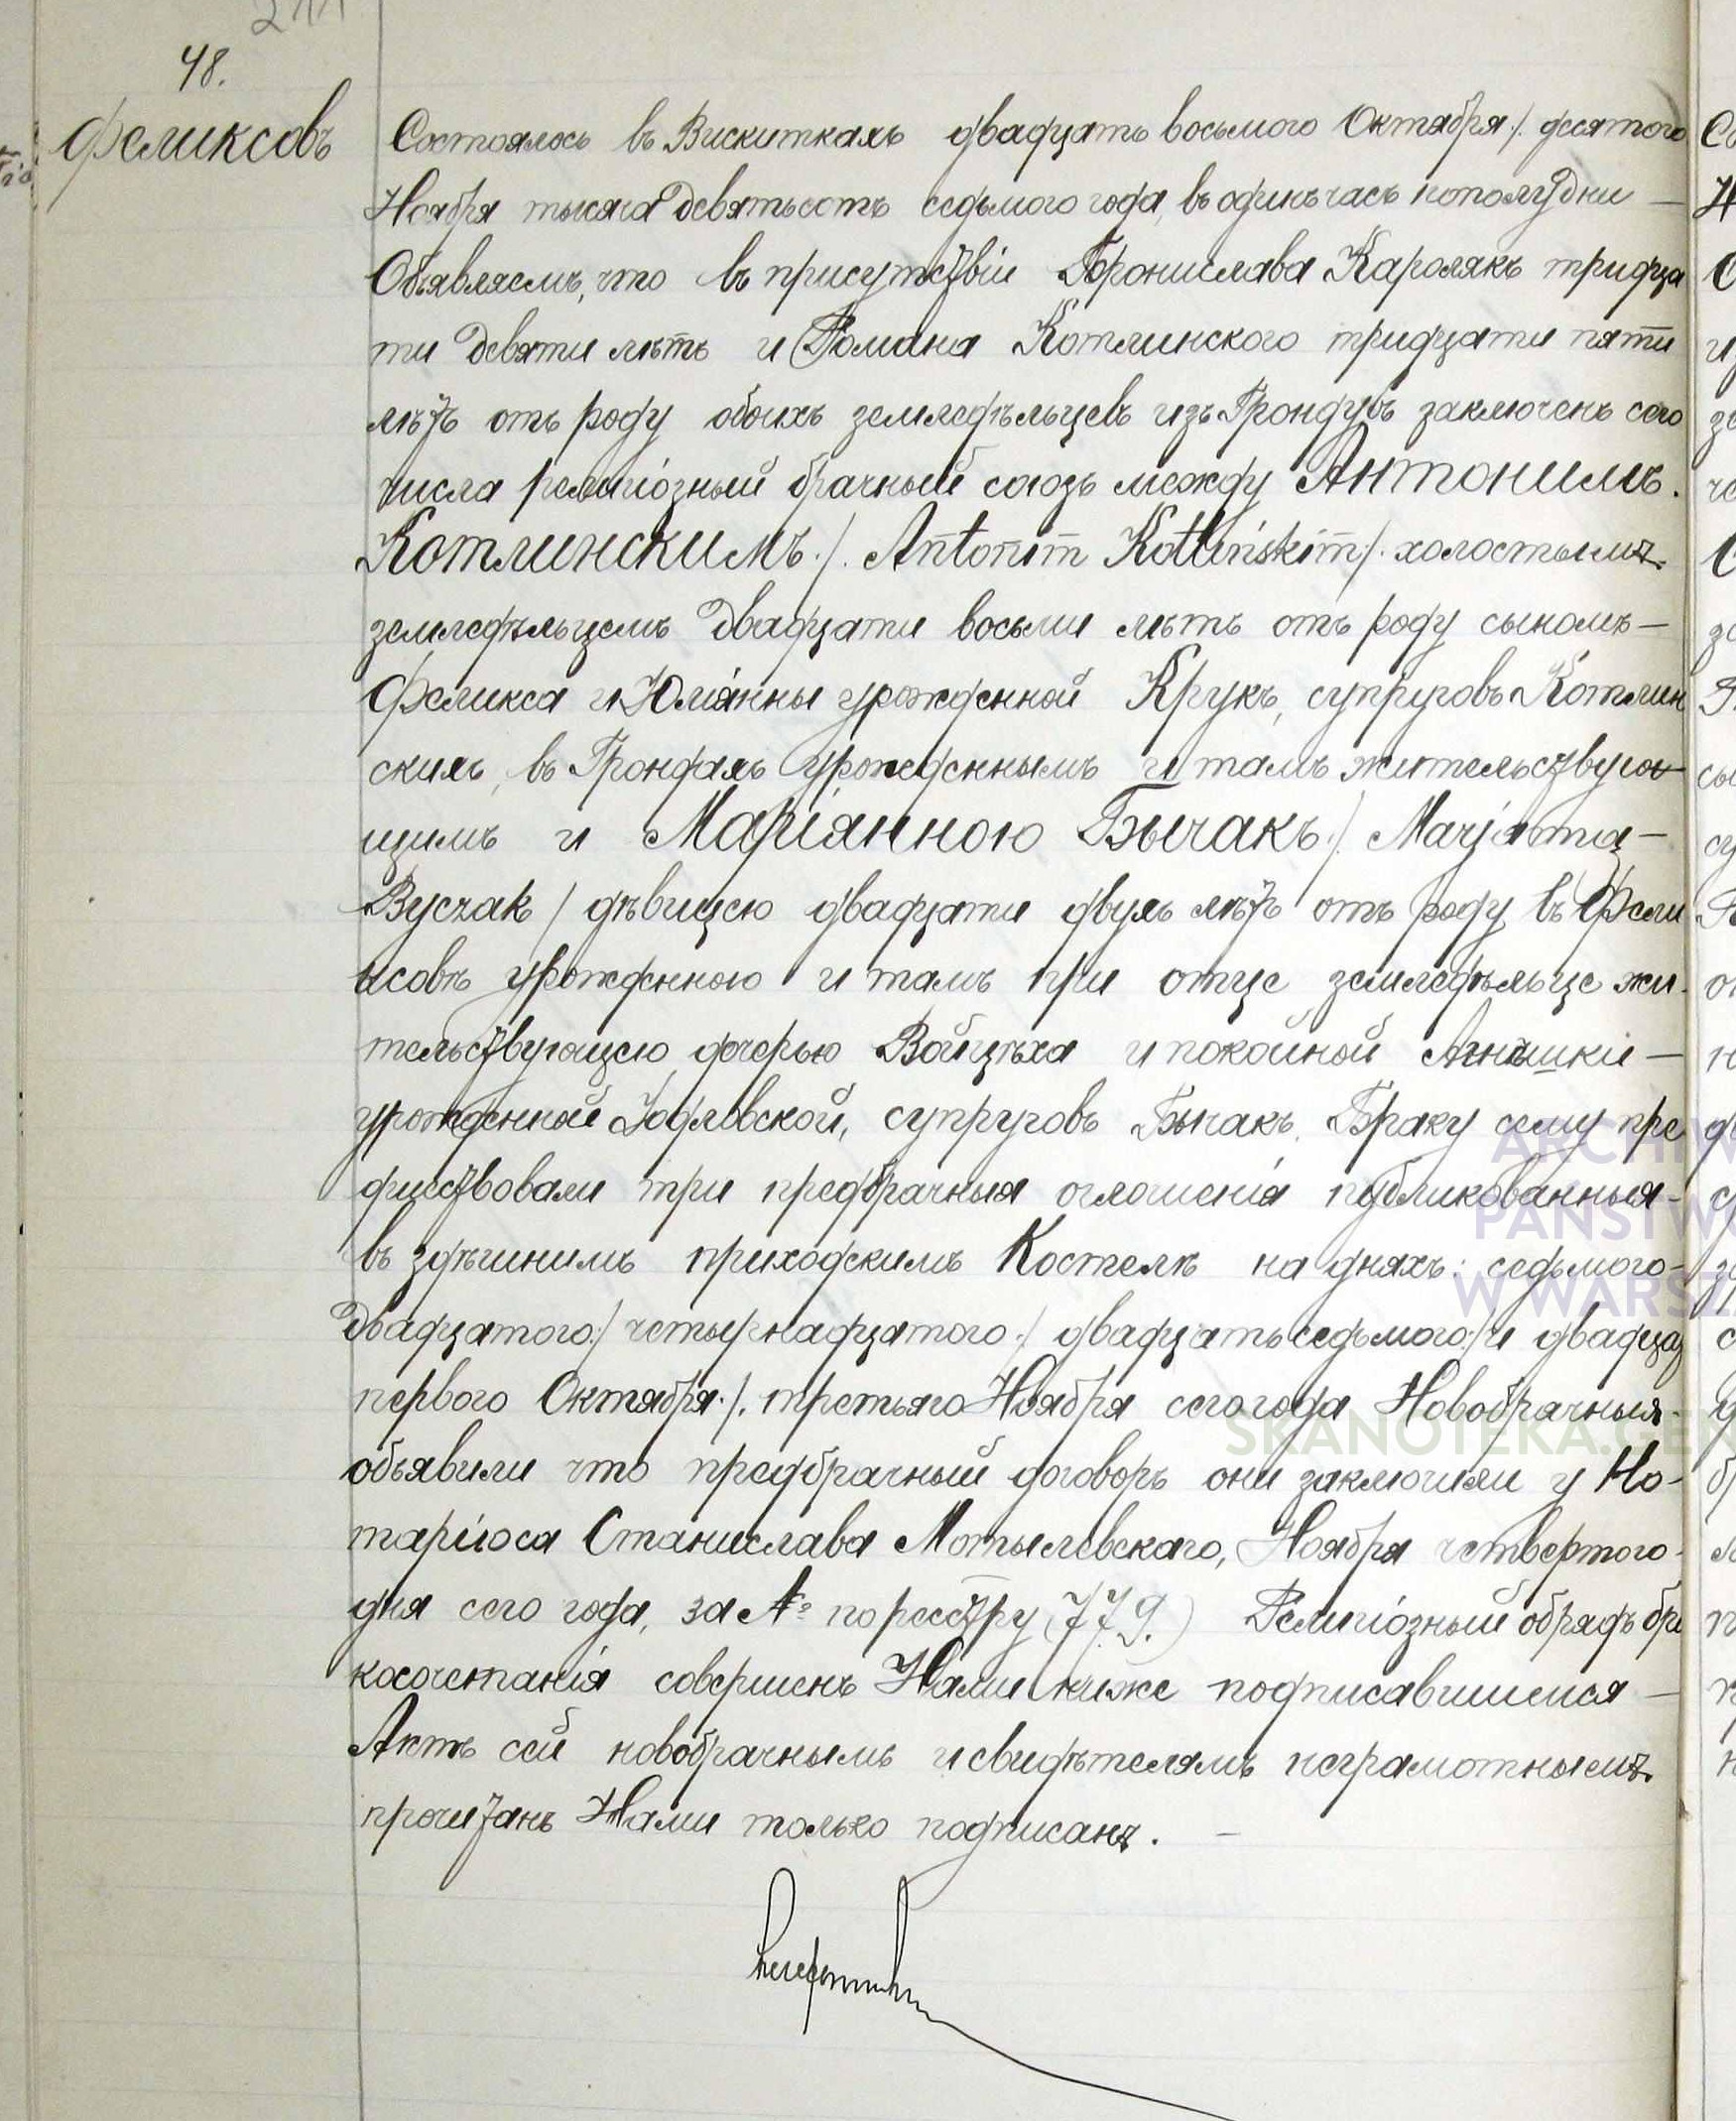 48.
Феликсовъ
Состоялось въ Вискиткахъ двадцать восьмого Октября ./. десятого
Ноября тысяча девятьсотъ седьмого года, въ одинъ часъ пополудни —
Объявляемъ, что въ присутствіи Бронислава Кароляка тридца
ти девяти лѣтъ и Романа Котлинского тридцати пяти
лѣтъ отъ роду обоихъ земледѣльцевъ изъ Грондувъ заключенъ сего
числа религіозный брачный союзъ между Антонимъ
Котлинскимъ ./. Antonim Kotlińskim /. холостымъ
земледѣльцемъ двадцати восьми лѣтъ отъ роду сыномъ —
Феликса и Юліянны урожденной Крукъ, супруговъ Котлин
скихъ, въ Грондахъ урожденнымъ и тамъ жительствую
щимъ и Маріянною Бычакъ ./. Marjanną —
Byczak / дѣвицею двадцати двухъ лѣтъ отъ роду, въ Фели
ксовѣ урожденною и тамъ при отце земледѣльце жи-
тельствующею дочерью Войцѣха и покойной Агнѣшки —
урожденной супруговъ Бычакъ. Браку сему пре
дшествовали три предбрачныя оглошенія публикованныя -
въ здѣшнимъ приходскимъ Костелѣ на дняхъ: седьмого -
двадцатого ./ четырнадцатого ./ двадцать седьмого ./ и двадца
первого Октября ./. третьяго Ноября сего года Новобрачныя -
объявили что предбрачный договоръ они заключили у Но-
таріюса Станислава Мотылевскаго, Ноября четвертого -
дня сего года, за № по реестру (779.) Религіозный обрядъ бра
косочетанія совершенъ Нами ниже подписавшимися —
Актъ сей новобрачнымъ и свидѣтелямъ неграмотнымъ
прочитанъ Нами только подписанъ. —
ARCHIW
PAŃSTW
W WARSZ
SKANOTEKA.GEN